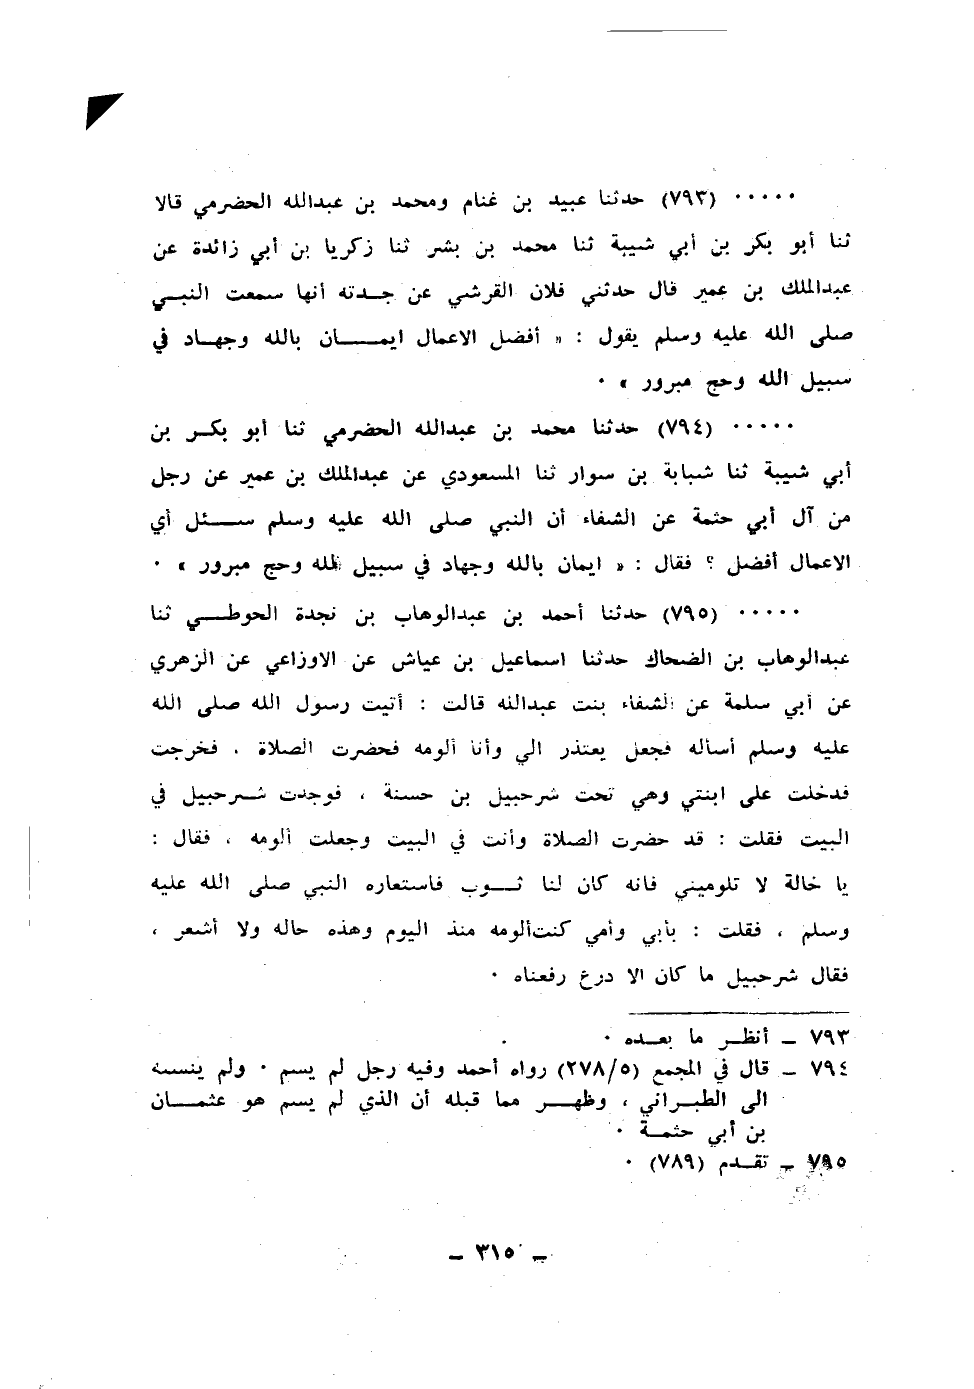 ٠٠٠٠٠ (٧٩٣) حدثنا عبيد بن غنام ومحمد بن عبدالله الحضرمي قالا
ثنا أبو بكر بن أبي شيبة ثنا محمد بن بشر ثنا زكريا بن أبي زائدة عن
عبدالملك بن عمير قال حدثني فلان القرشي عن جدته أنها سمعت النبي
صلى الله عليه وسلم يقول : « أفضل الاعمال ايمان بالله وجهاد في
سبيل الله وحج مبرور » ٠
٠٠٠٠٠ (٧٩٤) حدثنا محمد بن عبدالله الحضرمي ثنا أبو بكر بن
أبي شيبة ثنا شبابة بن سوار ثنا المسعودي عن عبدالملك بن عمير عن رجل
من آل أبي حثمة عن الشفاء أن النبي صلى الله عليه وسلم سئل أي
الاعمال أفضل ؟ فقال : « ايمان بالله وجهاد في سبيل الله وحج مبرور » ٠
٠٠٠٠٠ (٧٩٥) حدثنا أحمد بن عبدالوهاب بن نجدة الحوطي ثنا
عبدالوهاب بن الضحاك حدثنا اسماعيل بن عياش عن الاوزاعي عن الزهري
عن أبي سلمة عن الشفاء بنت عبدالله قالت : أتيت رسول الله صلى الله
عليه وسلم أسأله فجعل يعتذر الي وأنا ألومه فحضرت الصلاة ، فخرجت
فدخلت على ابنتي وهي تحت شرحبيل بن حسنة ، فوجدت شرحبيل في
البيت فقلت : قد حضرت الصلاة وأنت في البيت وجعلت ألومه ، فقال :
يا خالة لا تلوميني فانه كان لنا ثوب فاستعاره النبي صلى الله عليه
وسلم ، فقلت : بأبي وأمي كنت ألومه منذ اليوم وهذه حاله ولا أشعر ،
فقال شرحبيل ما كان الا درع رفعناه ٠
٧٩٣ ــ أنظر ما بعده ٠
٧٩٤ ــ قال في المجمع (٢٧٨/٥) رواه أحمد وفيه رجل لم يسم ٠ ولم ينسبه
الى الطبراني ، وظهر مما قبله أن الذي لم يسم هو عثمان
بن أبي حثمة ٠
٧٩٥ ــ تقدم (٧٨٩) ٠
ــ ٣١٥ ــ